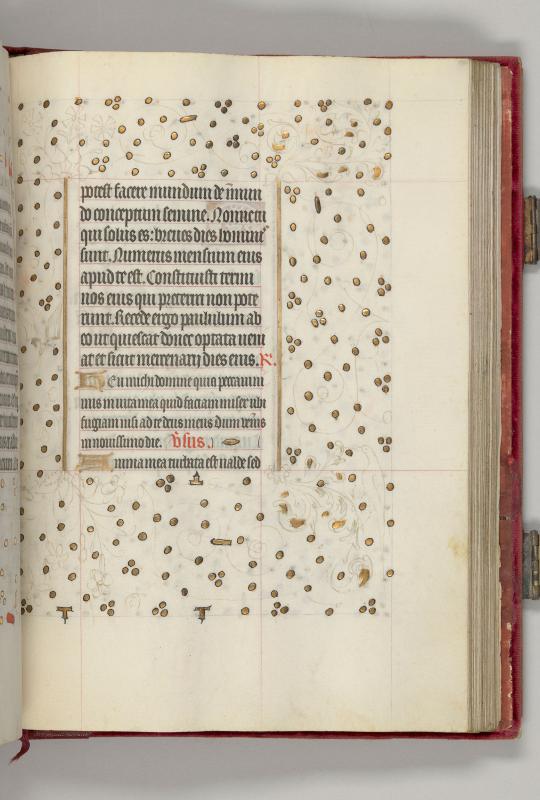 potest facere mundum de īmun
do conceptum semine. Nonne tu
qui solus es: breues dies hominis
sunt. Numerus mensium eius
apud te est. Constituisti termi
nos eius qui preteriri non pote
runt. Recede ergo paululum ab
eo ut quiescat donec optata veni
at et sicut mercenarij dies eius. R.
Heu michi domine quia peccaui ni
mis in vita mea quid faciam miser ubi
fugiam nisi ad te deus meus dum veneris
in nouissimo die. Vsus.
Anima mea turbata est ualde sed